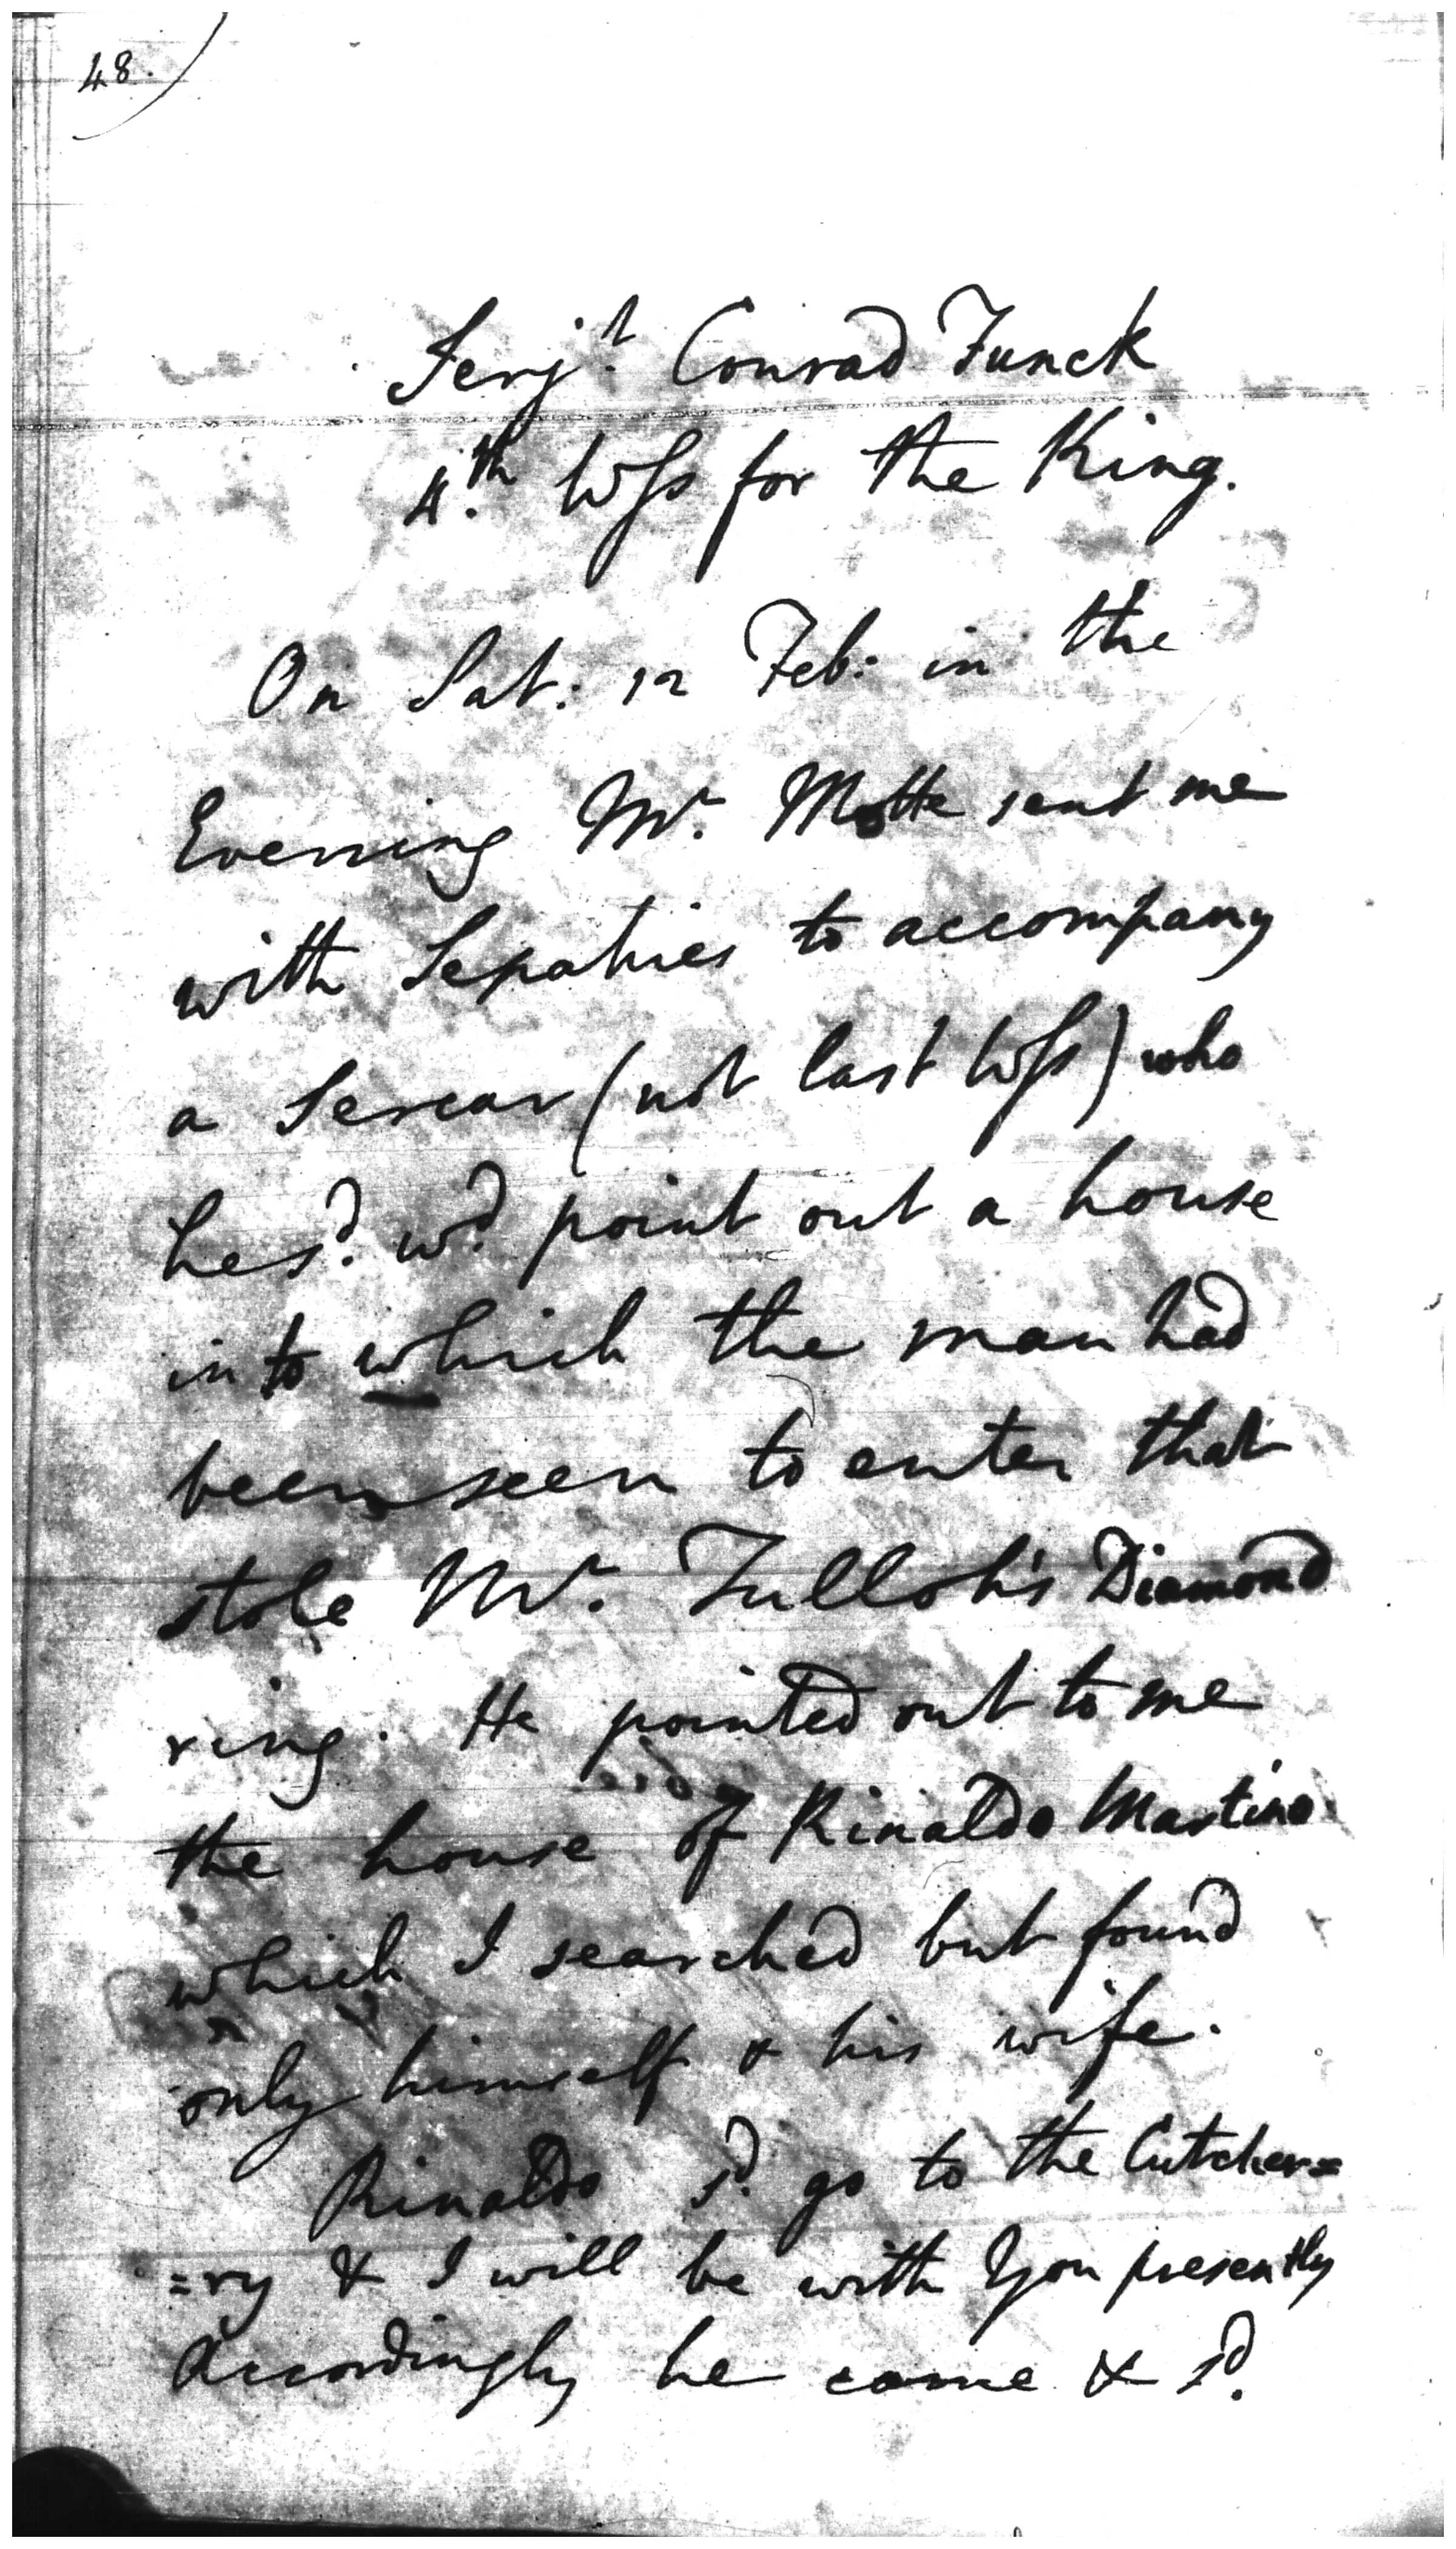 48.
Serjt. Conrad Funck
4.th Wss for the King.
On Sat: 12 Feb: in the
Evening Mr. Motte sent me
with Sepahies to accompany
a Sercar (not last Wss) who
he sd. wd. point out a house
into which the man had
been seen to enter that
stole Mr. Tulloh's Diamond
ring. He pointed out to me
the house of Rinaldo Martino
which I searched but found
only himself & his wife.
Rinaldo sd. go to the Cutcher=
=ry & I will be with You presently
Accordingly he came & sd.